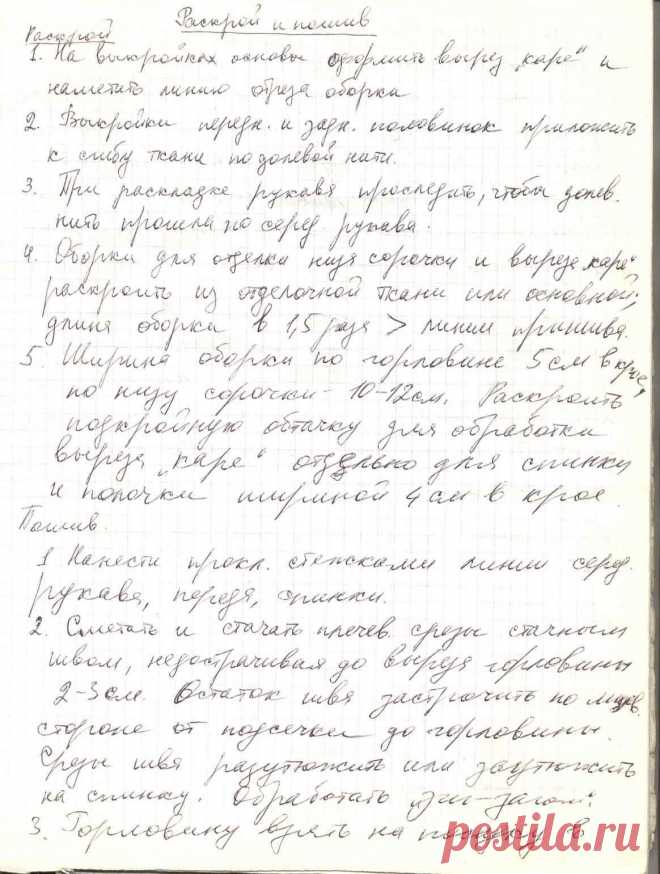 Раскрой и пошив
Раскрой
1. На выкройках основы оформить вырез „каре" и
наметать линию отреза оборки
2. Выкройки передн. и задн. половинок приложить
к сгибу ткани по долевой нити.
3. При раскладке рукава проследить, чтобы долев.
нить прошла по серед. рукава.
4. Оборки для отделки низа сорочки и выреза „каре"
раскроить из отделочной ткани или основной;
длина оборки в 1,5 раза > линии пришива.
5. Ширина оборки по горловине 5 см в крое,
по низу сорочки - 10-12 см. Раскроить
подкройную обтачку для обработки
выреза „каре" отдельно для спинки
и полочки шириной 4 см в крое.
Пошив.
1 Нанести прокл. стежками линии серед.
рукава, переда, спинки.
2. Сметать и стачать плечев. срезы стачным
швом, недострачивая до выреза горловины
2-3 см. Остаток шва застрочить по лицев.
стороне от подсечки до горловины.
Срезы шва разутюжить или заутюжить
на спинку. Обработать „зиг-загом".
3. Горловину взять на в
postila.ru